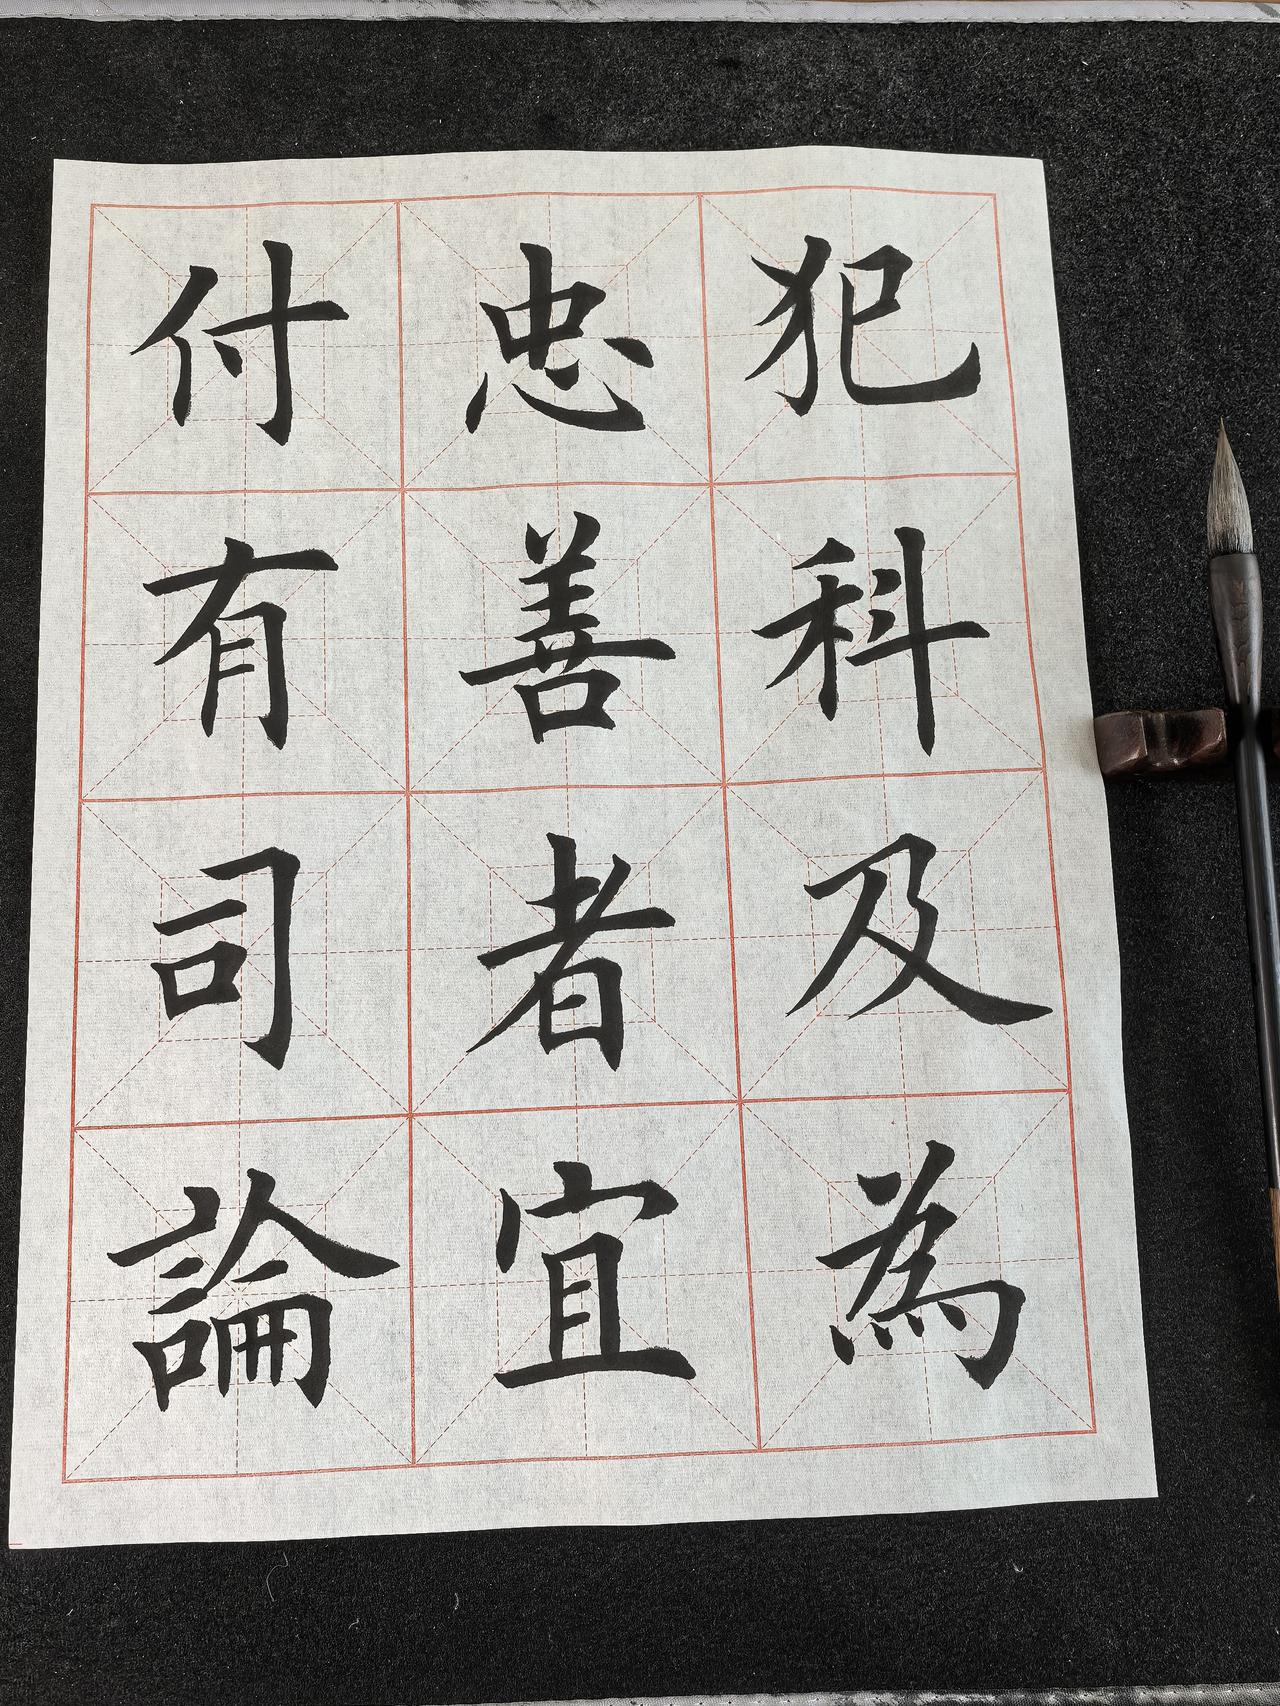 犯科及為
忠善者宜
付有司論